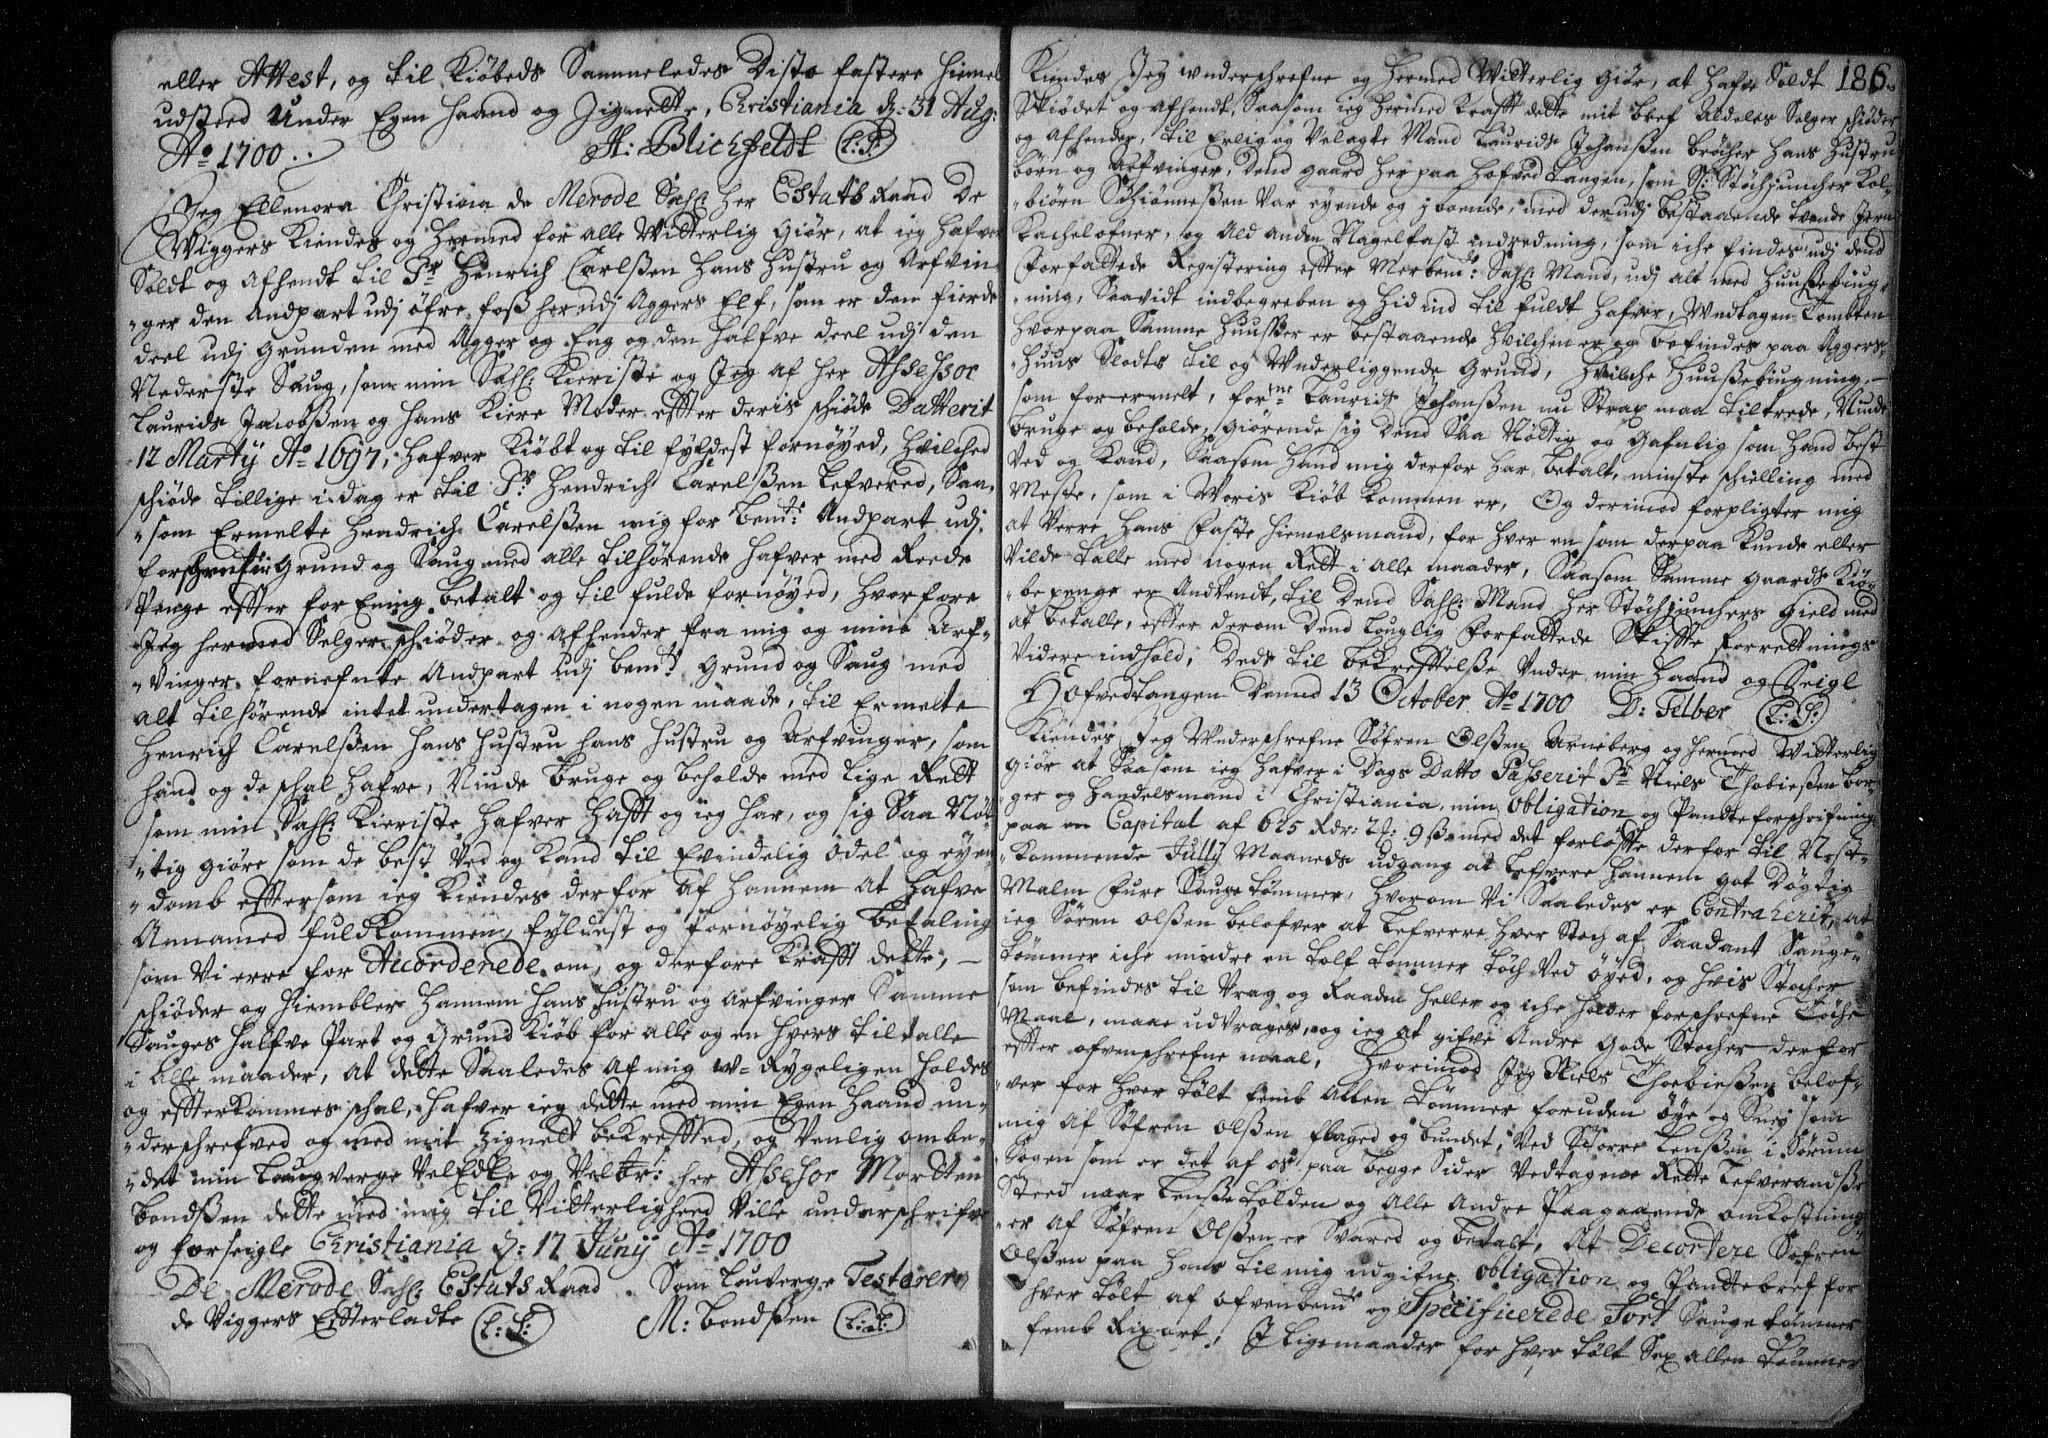 eller Attest, og til Kiøbeds Sammeledes Viste fastere Hiemel
udsteed under Egen Haand og Zignette, Christiania d: 31 Aug:
Ao 1700.
H: Blichfeldt (L:S:)
Jeg Ellenora Christina de Merode Sahl: Her Estats Raad De
Wiggers Kiendes og hermed for alle Witterlig Giør, at ieg hafver
Soldt og Afhendt til Sr Henrich Carlssen Hans Hustru og Arfvin-
-ger den Andpart udj øfre foss her udj Aggers Elf, som er den fierde
deel udj Grunden med Agger og Eng og den halfve deel udj den
Nederste Saug, som min Sahl: Kieriste og Jeg af her Assessor
Laurids Jacobssen og hans Kiere Moder effter deris schiøde Datterit
12 Martij Ao 1697, hafver Kiøbt og til fyldest fornøyed, hvilched
schiøde tillige i dag er til Sr Hendrich Carelssen Lefvered, Saa-
-som Ermelte Hendrich Carelssen mig for bemte: Andpart udj
forschrefne Grund og Saug med alle tilhørende hafver med Reede
Penge effter for Ening betalt og til fulde fornøyed, hvorfore
Jeg hermed Selger schiøder og Afhender fra mig og mine Arf-
-vinger fornefnte Andpart udj bemte Grund og Saug med
alt tilhørende intet undertagen i nogen maade, til Ermelte
Henrich Carelssen hans hustru hans hustru og Arfvinger, som
hand og de schal hafve, Niude bruge og beholde med lige Rett
som min Sahl: Kieriste hafver hafft og ieg har, og sig Saa Nøt-
-tig giøre som de best Ved og Kand til Evindelig odel og eyen-
-domb effttersom ieg Kiendes derfor af Hannem at hafve
Annamed fuldkommen, fyldest og fornøyelig betaling
som Vi erre for Accorderede om, og derfore Krafft dette,
schiøder og hiembler Hannem Hans hustru og Arfvinger Samme
Sauges halfve Part og Grund Kiøb for alle og en hvers tiltalle
i alle maader, at dette Saaledes af mig w-Rygeligen holdes
og effterkommes schal, hafver ieg dette med min Egen Haand un-
-derschrefved og med mit Zignett bekreffted, og Venlig ombe-
-det min Laugverge VelEdle og Velbr: her Assessor Mortten
bondssen dette med mig til Vitterlighed Ville underschrifve
og forseigle Christiania d: 17 Junij Ao 1700
De Merode Sahl: Estats Raad Som Lauverge Testerer
de Viggers Effterladte (L:S:) M: bondssen (L:S:)
186.
Kiendes Jeg underschrefne og hermed Witterlig Giør, at hafve Soldt
Skiødet og afhendt, Saasom ieg hermed Krafft dette mit bref Aldeles Selger schiøder
og afhender, til Erlig og Velagte Mand Laurids Johanssen brøcher Hans Hustru
børn og Arfvinger, Dend gaard her paa Hofved Tangen, som Sl: Støchjuncher Kol-
-biørn Schiønnessen Var eyende og iboende, med derudj bestaaende tvende Jern
Kachelofner, og Ald anden Nagelfast indredning, som iche findes udj dend
forfattede Registering effter Merbemte: Sahl: Mand, udj alt med huussebiug-
-ning, Saavidt indbegreben og hid ind til fuldt hafver, Undtagen Tombten
hvorpaa Samme huusser er bestaaende hvilchen er og befindes paa Aggers-
-huus Slodts til og Underliggende Grund, Hvilche huussebiugning,
som for ermelt, forne: Laurids Johanssen nu Strax maa tiltrede, Niude
bruge og beholde, Giørende sig Dend Saa Nøttig og Gafnlig som hand best
Ved og Kand, Saasom hand mig derfor har betalt, minste schielling med
Meste, som i Woris Kiøb Kommen er, Og derimod forpligter mig
at Verre hans faste hiemelsmand, for hver en som derpaa Kunde eller
Vilde talle med nogen Rett i Alle maader, Saasom Samme Gaards Kiø-
-bepenge er Andvendt, til Dend Sahl: Mand her Støchjunchers Gield med
at betalle, effter derom Dend Louglig forfattede Skiffte forrettnings
Videre indhold, Deds til bekrefftelsse Under min Haand og Seigl
Hofvedtangen Dend 13 October Ao 1700 D: Felber (L:S:)
Kiendes Jeg Underschrefne Søfren Olssen Arneberg og hermed Witterlig
giør at Saasom ieg hafver i Dags Datto Passerit Sr Niels Thobiessen bor-
-ger og handelsmand i Christiania, min Obligation og Pandteforschrifning
paa en Capital af 625 Rdr: 2 : 9 ß med det forløffte derfor til Nest-
-Kommende Jully Maaneds udgang at Lefvere Hannem got Døgtig
Malm Fure Saugetømmer, hvorom Vi Saaledes er Contraherit, at
ieg Søren Olssen belofver at Lefverre hver Stoch af Saadant Sauge-
tømmer iche mindre en tolf tommer tøch Ved øyed, og hvis Stocher
som befindes til Vrag og Raaden heller og iche holder forschrefne Tøche
Maal, maae udVrages, og ieg at gifve Andre Gode Stocher derfor
effter ofvenschrefne maal, Hvorimod Jeg Niels Thoebiessen belof-
-ver for hver tolt femb Allen Tømmer foruden øye og Snej som
mig af Søfren olssen flaged og bundet, Ved Store Lenssen i Sørum
Sogen som er det af os paa begge Sider Vedtagene Rette Lefverandsse
Steed naar Lensse tolden og Alle Andre Paagaaende omkostning-
-er af Søfren Olssen er Svared og betalt, At Decortere Søfren
Olssen paa hans til mig udgifne obligation og Pandtebref for
hver tolt af ofvenbemte og Specificerede Sort Saugetømmer
femb Rixort, J Ligemaader for hver tolt Sex allen Tømmer